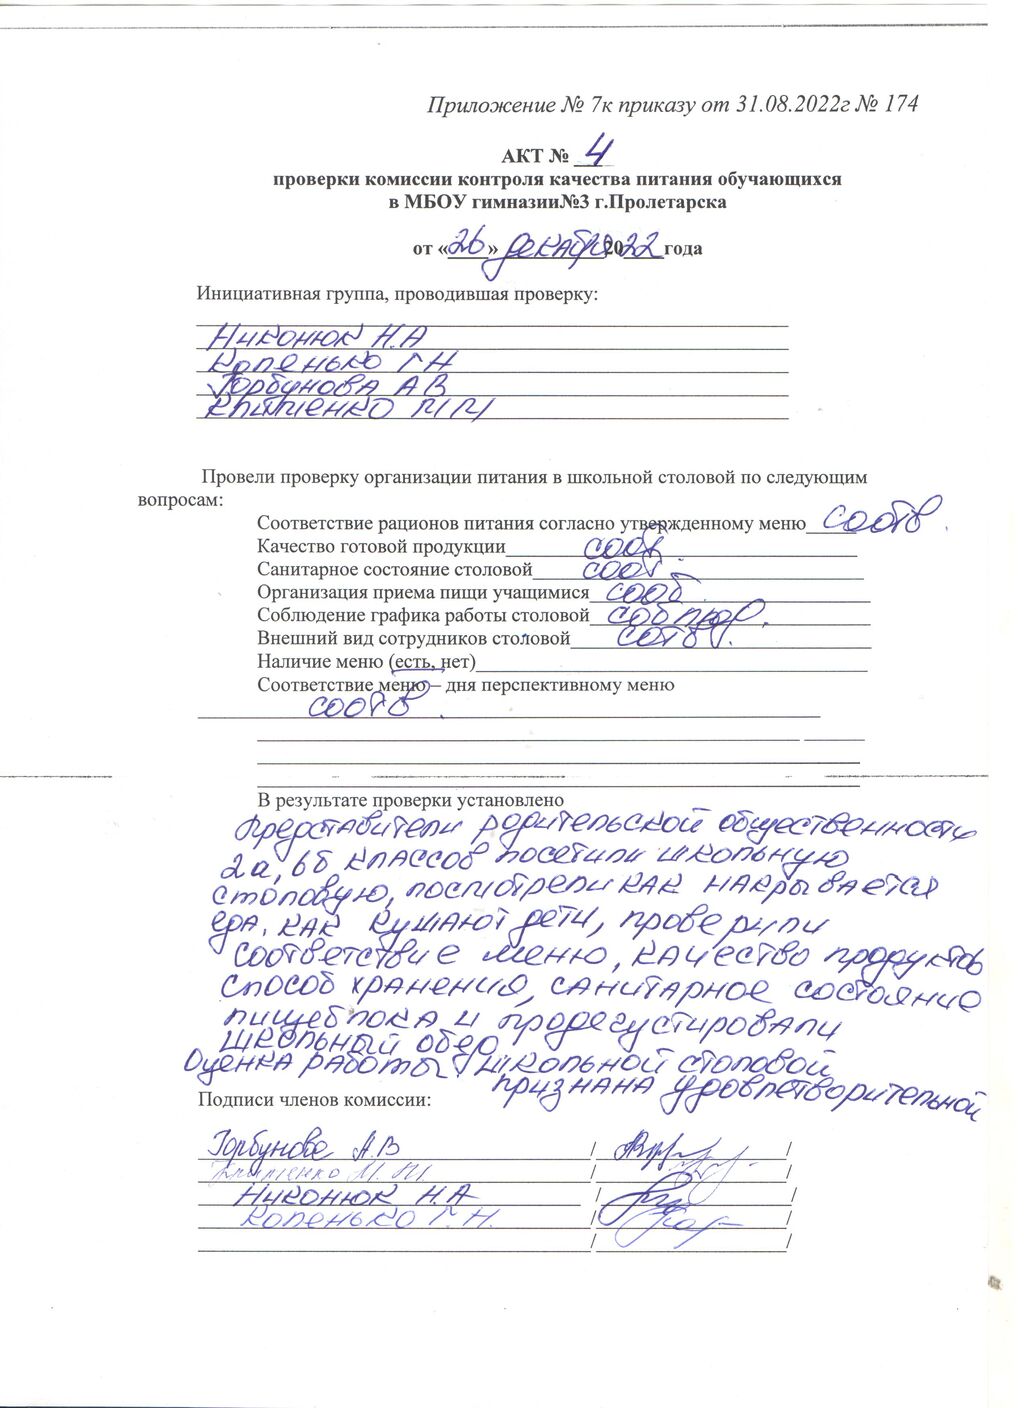 Приложение № 7к приказу от 31.08.2022г № 174
АКТ № 4
проверки комиссии контроля качества питания обучающихся
в МБОУ гимназии№3 г.Пролетарска
от «26» декабря 2022 года
Инициативная группа, проводившая проверку:
Никонюк Н.А
Копенько Г Н
Горбунова А В
Провели проверку организации питания в школьной столовой по следующим
вопросам:
Соответствие рационов питания согласно утвержденному меню соотв.
Качество готовой продукции соотв.
Санитарное состояние столовой соот.
Организация приема пищи учащимися сооб.
Соблюдение графика работы столовой соблюд.
Внешний вид сотрудников столовой сотв.
Наличие меню (есть, нет)
Соответствие меню – дня перспективному меню
соотв.
В результате проверки установлено
Представители родительской общественности
2а, 6б классов посетили школьную
столовую, посмотрели как накрывается
еда, как кушают дети, проверили
соответствие меню, качество продуктов
способ хранения, санитарное состояние
пищеблока и продегустировали
школьный обед
Оценка работы школьной столовой
признана удовлетворительной
Подписи членов комиссии:
Горбунова А.В / /
/ /
Никонюк Н.А / /
Копенько Г.Н. / /
/ /